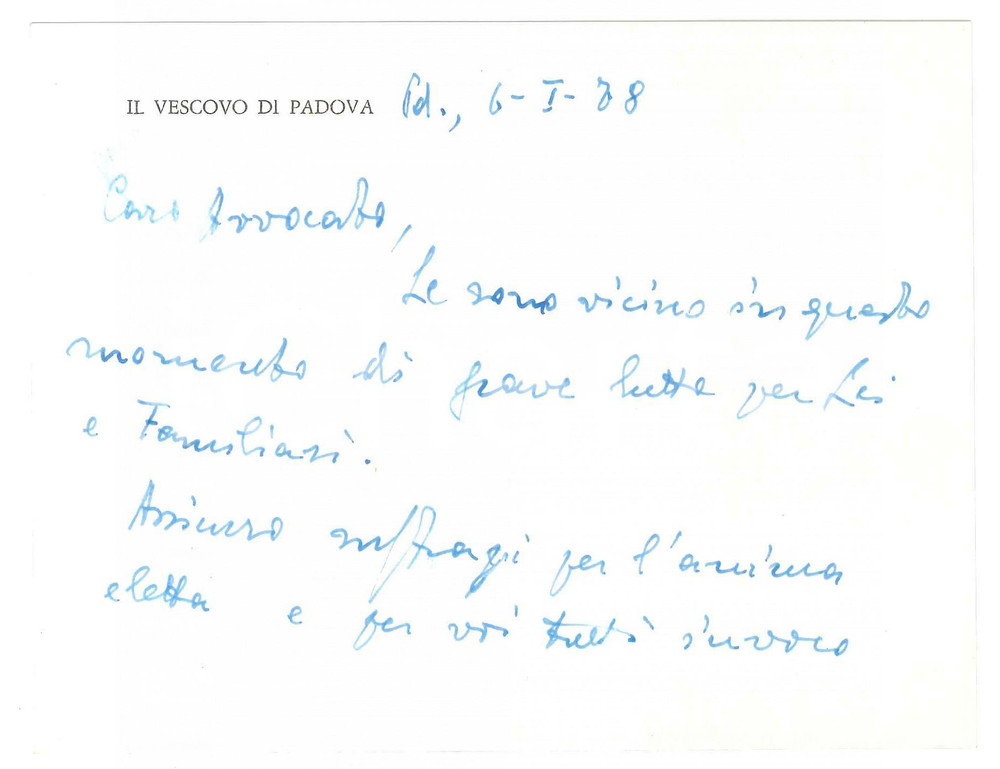 IL VESCOVO DI PADOVA Pd., 6-I-78
Caro Avvocato,
Le sono vicino in questo
momento di grave lutto per Lei
e Familiari.
Assicuro suffragi per l'anima
eletta e per voi tutti invoco